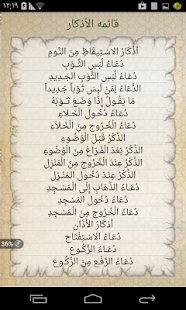 ١٢:١٩
قائمه الأذكار
أذْكَارُ الاسْتِيقَاظِ مِنَ النَّومِ
دُعَاءُ لُبْسِ الثَّوْبِ
دُعَاءُ لِمَنْ لَبِسَ ثَوْباً جَدِيداً
مَا يَقُولُ إِذَا وَضَعَ ثَوْبَهُ
دُعَاءُ دُخُولِ الْخَلاَءِ
دُعَاءُ الْخُرُوجِ مِنَ الْخَلاَءِ
الذِّكْرُ قَبْلَ الْوُضُوءِ
الذِّكْرُ بَعْدَ الْفَرَاغِ مِنَ الْوُضُوءِ
الذِّكْرُ عِنْدَ الْخُرُوجِ مِنَ الْمَنْزِلِ
الذِّكْرُ عِنْدَ دُخُولِ الْمَنْزِلِ
دُعَاءُ الذَّهَابِ إِلَى الْمَسْجِدِ
دُعَاءُ دُخُولِ الْمَسْجِدِ
دُعَاءُ الْخُرُوجِ مِنَ الْمَسْجِدِ
36%
أذْكَارُ الأذَانِ
دُعَاءُ الاسْتِفْتَاحِ
دُعَاءُ الرُّكُوعِ
دُعَاءُ الرَّفْعِ مِنَ الرُّكُوعِ